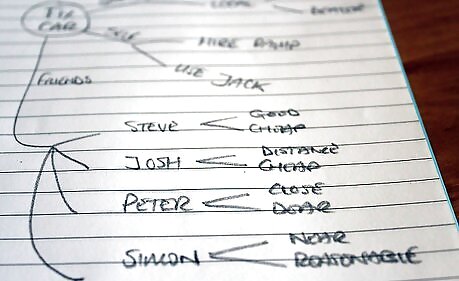 LOCAL
FIX
CAR
SELF
HIRE RAMP
USE JACK
FRIENDS
STEVE
GOOD
CHEAP
JOSH
DISTANCE
CHEAP
PETER
CLOSE
DEAR
SIMON
NEAR
REASONABLE